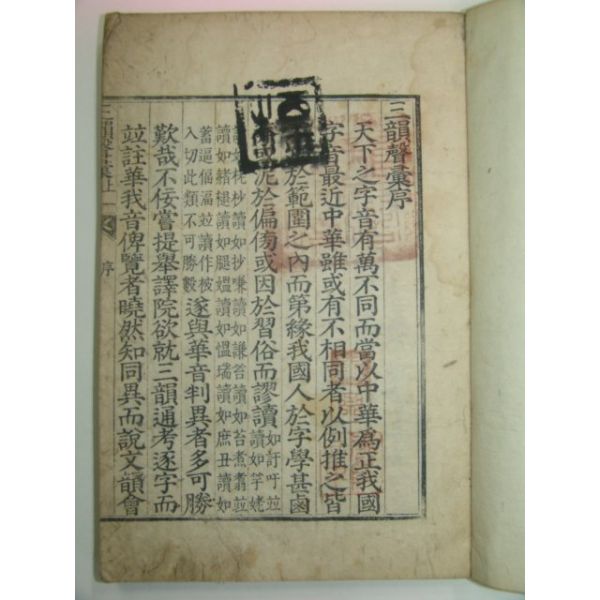 三韻聲彙序
天下之字音有萬不同而當以中華爲正我國
字音最近中華雖或有不相同者以例推之皆
於範圍之內而第緣我國人於字學甚鹵
泥於偏傍或因於習俗而謬讀如訏吁並
讀如竽姥
讀如杪抄讀如抄嗛讀如謙笞讀如苔煮翥並
讀如緖褪讀如腿媼讀如慍瑞讀如庶丑讀如
蓄逼偪湢並讀作被
入切此類不可勝毅
遂與華音判異者多可勝
歎哉不佞嘗提擧譯院欲就三韻通考逐字而
竝註華我音俾覽者曉然知同異而說文韻會
三韻聲彙 序